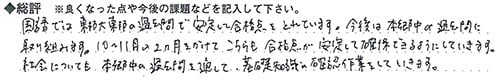 ◆総評 ※良くなった点や今後の課題などを記入して下さい。
国語では東邦大東邦の過去問で安定して合格点をとれています。今後は本郷中の過去問に
取り組みます。10〜11月の2ヵ月をかけてこちらも合格点が安定して確保できるようにしていきます。
社会についても、本郷中の過去問を通して、基礎知識の確認作業をしていきます。